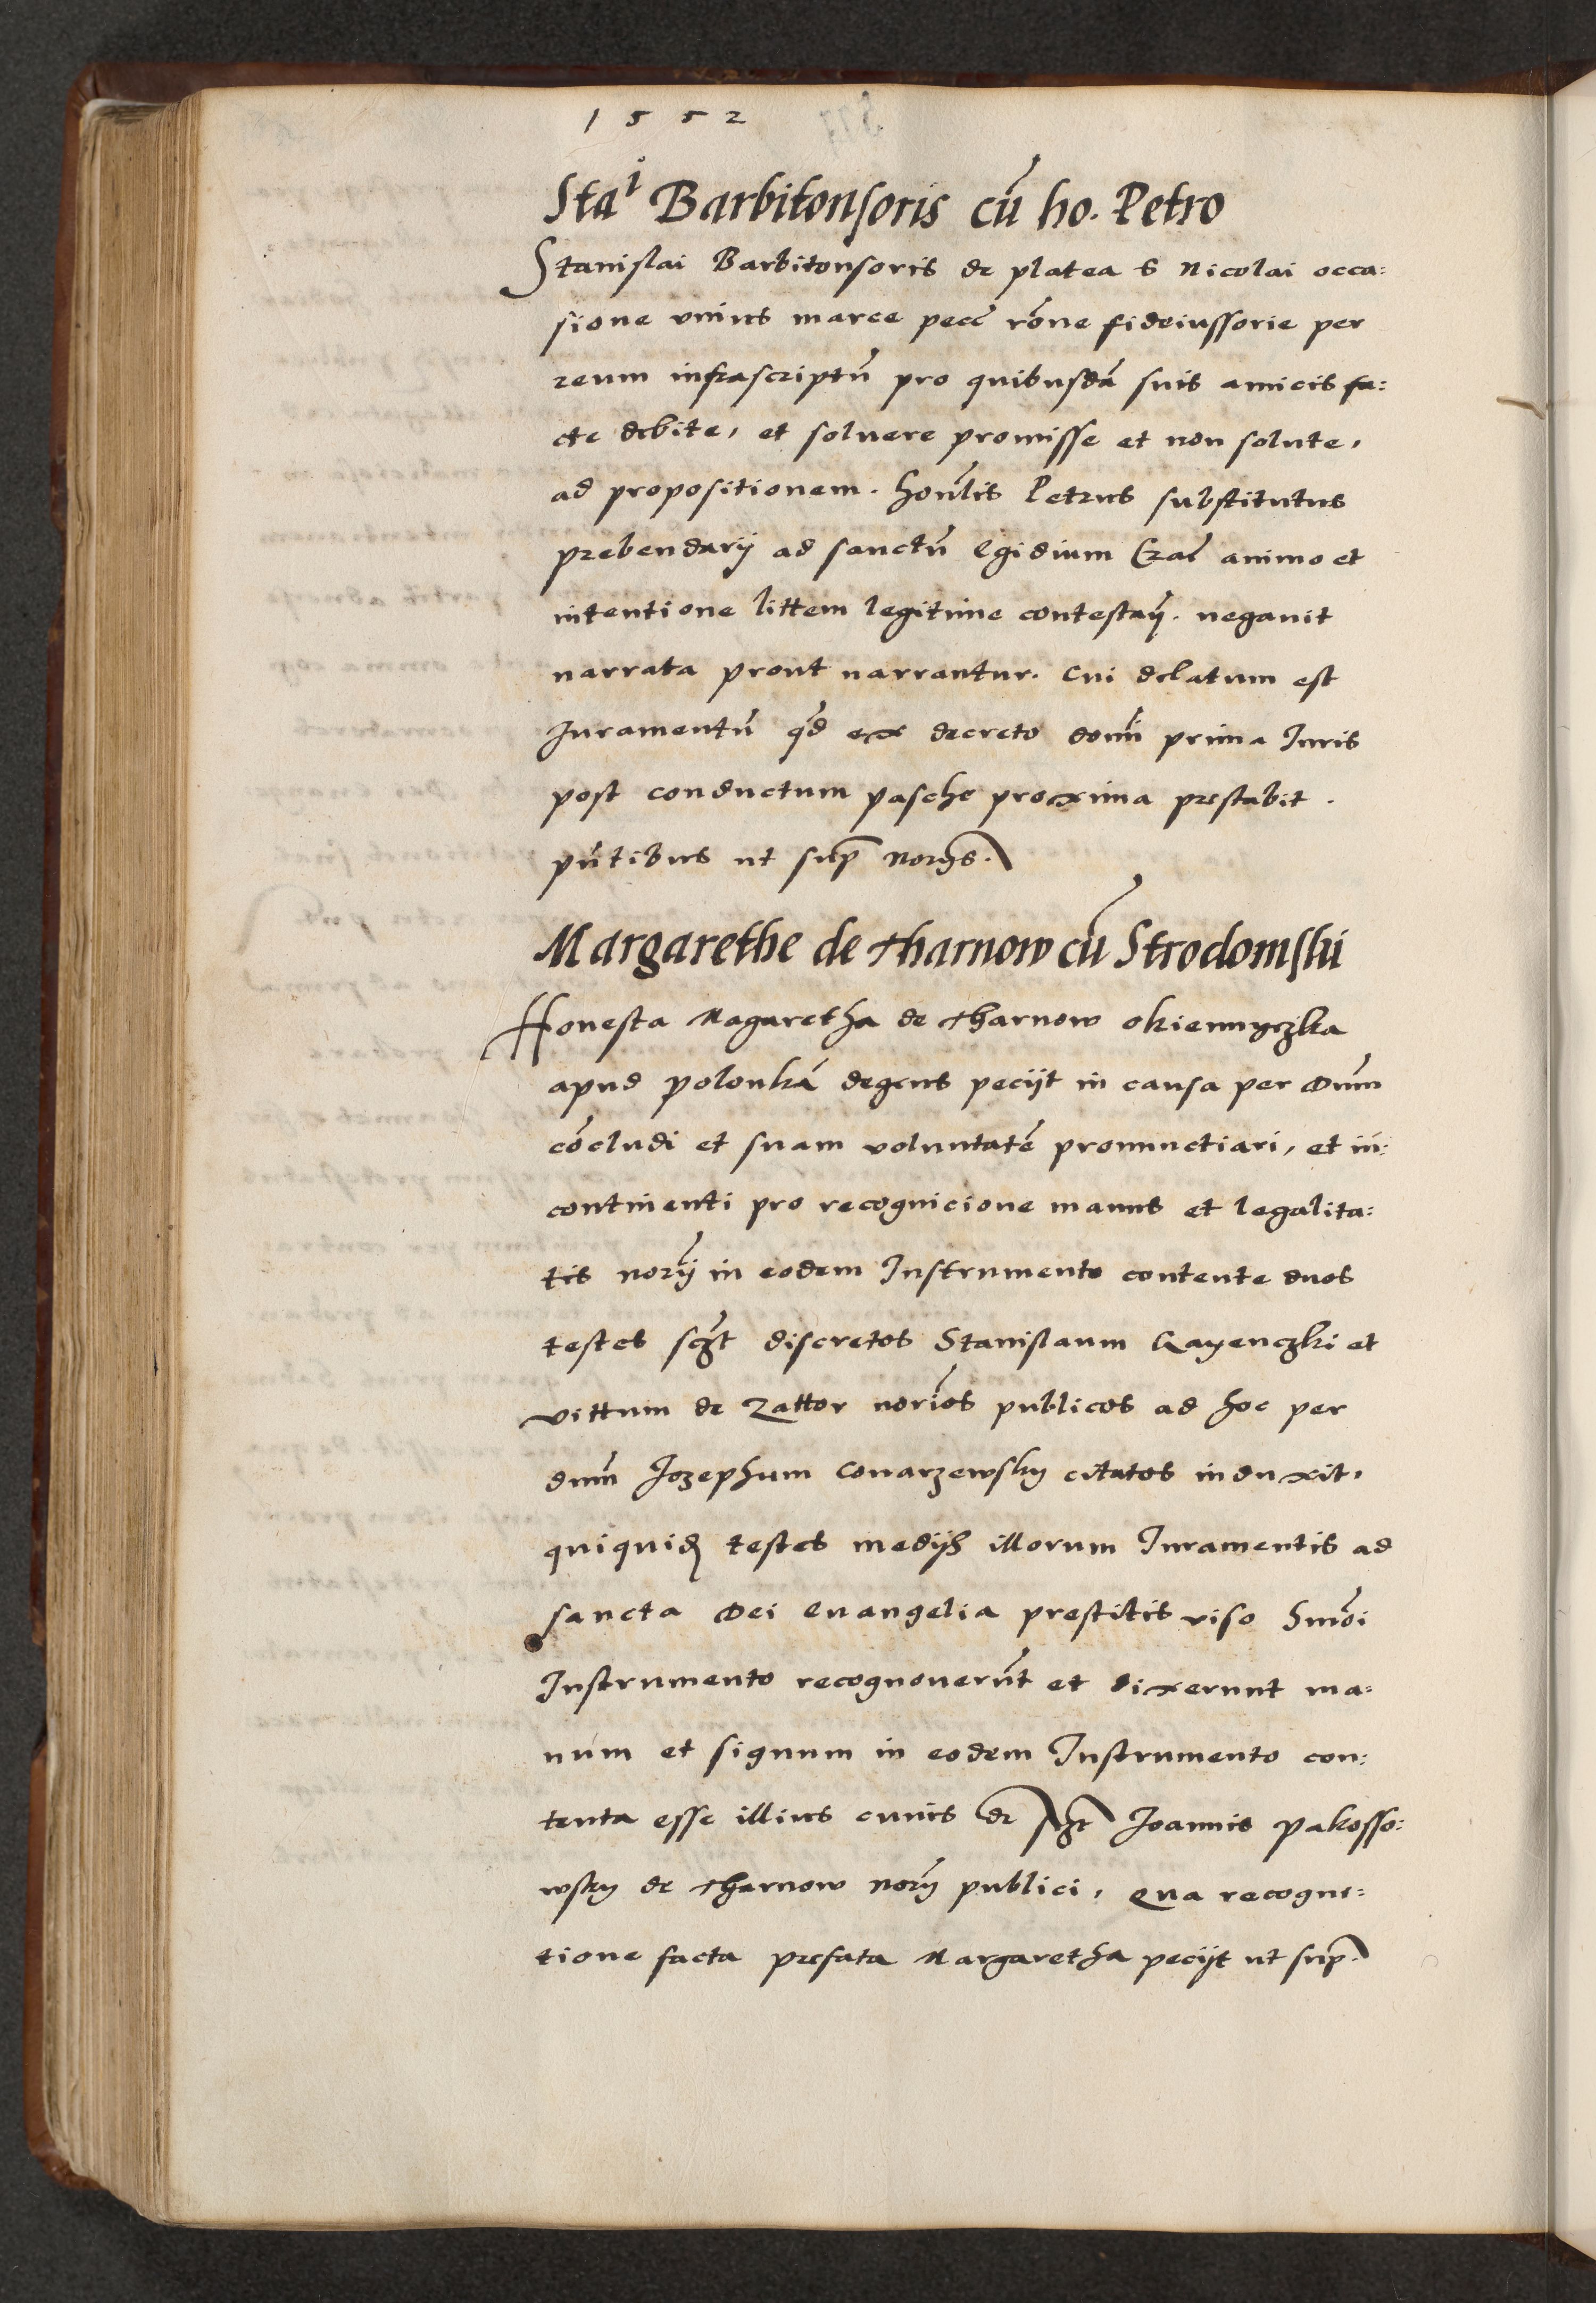 1552
Sta¹ Barbitonsoris cū ho. Petro
Stanislai Barbitonsoris de platea S Nicolai occa:
sione vnius marce pecē rōne fideiussorie per
reum infrascriptū pro quibusdā suis amicis fa:
cte debite, et soluere promisse et non solute,
ad propositionem. honlis Petrus substitutus
prebendarij ad sanctū Egidium Crac̄ animo et
intentione littem legitime contestaṇ. negauit
narrata prout narrantur. Cui delatum est
Juramentū qd ex decreto domī prima Juris
post conductum pasche proxima prestabit.
pn̄tibus ut sup̄ norijs.
Margarethe de tharnow cū Strodomski
Honesta Magaretha de tharnow okiennyczka
apud polonkā degens pecijt in causa per Dnūm
cōcludi et suam voluntatē pronunctiari, et in:
continenti pro recognicione manus et legalita:
tis norij in eodem Instrumento contente duos
testes sczt discretos Stanislaum Gayenczki et
vittum de Zattor norios publicos ad hoc per
dnūm Jozephum Conarzewsky citatos induxit,
quiquid testes medijs illorum Juramentis ad
sancta Dei Euangelia prestitis viso hmōi
Instrumento recognouerūt et dixerunt ma:
num et signum in eodem Instrumento con:
tenta esse illius cuius de sczt Joannis pakosso:
wsky de tharnow norij publici, Qua recogni:
tione facta prefata Margaretha pecijt ut sup̄.